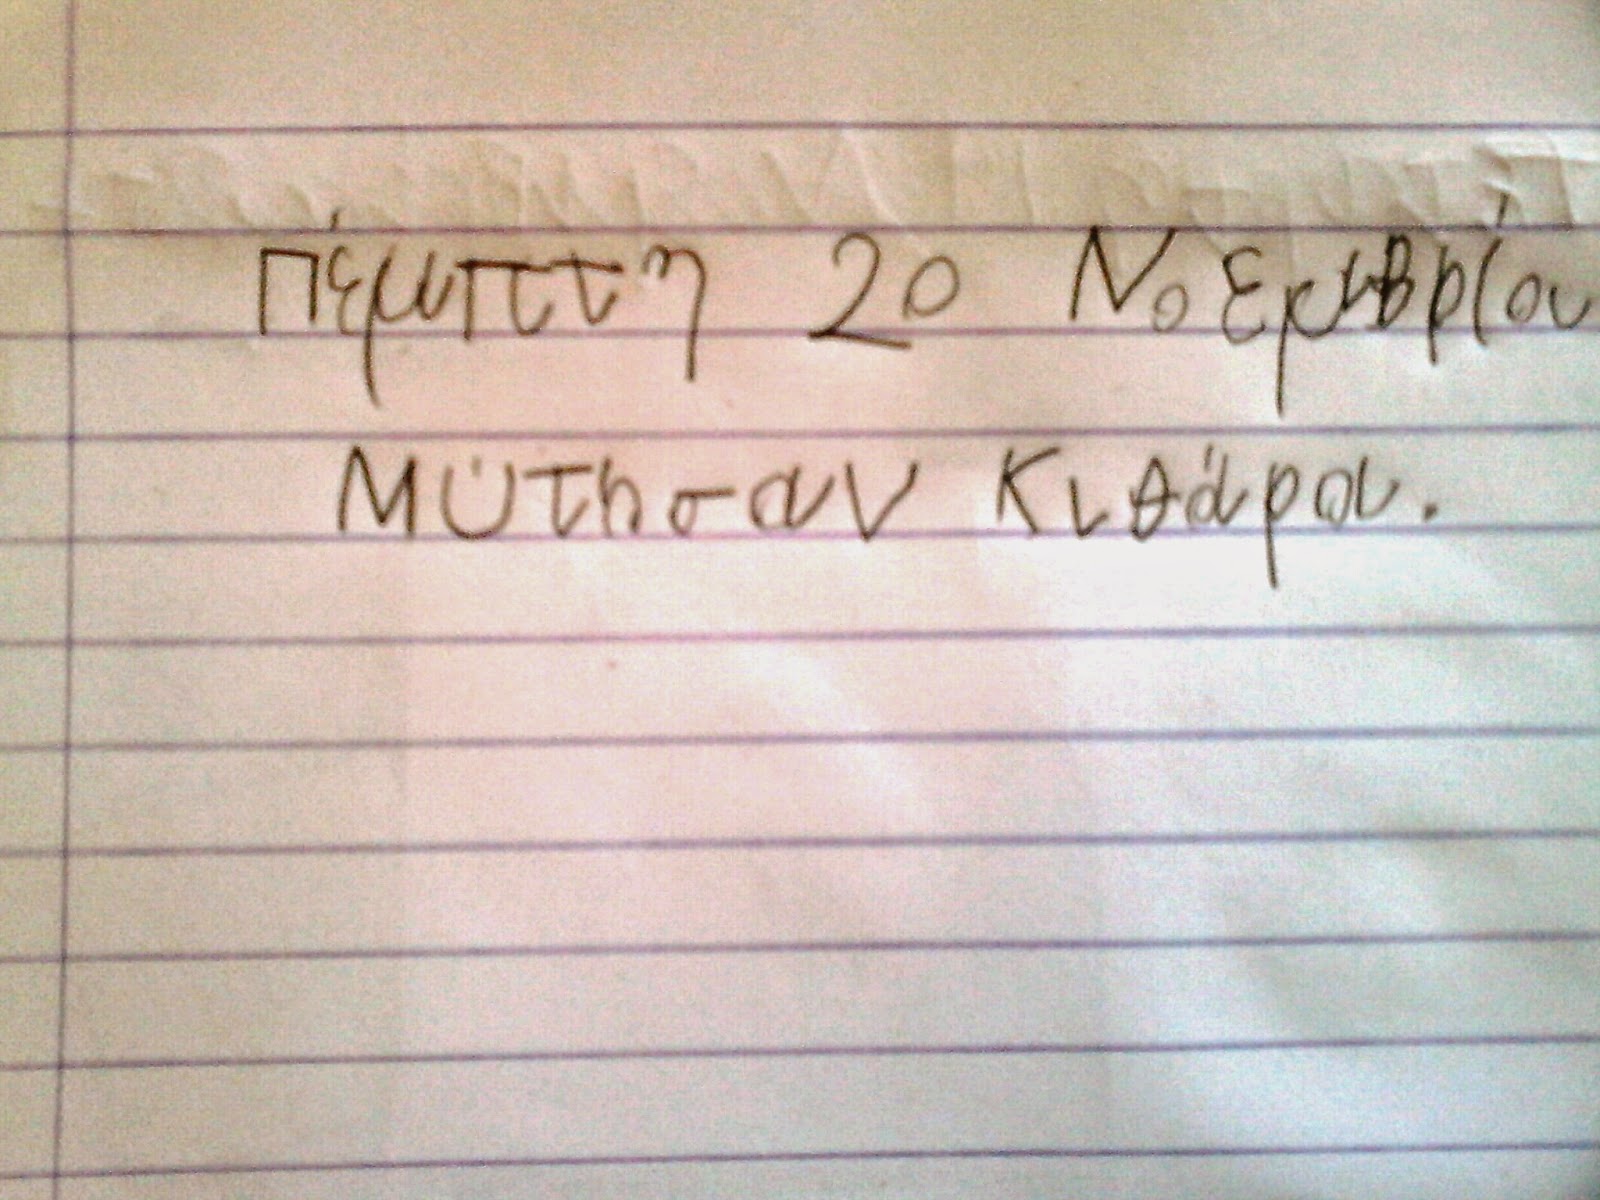 Πέμπτη 20 Νοεμβρίου
Μύτησαν κιθάρα.